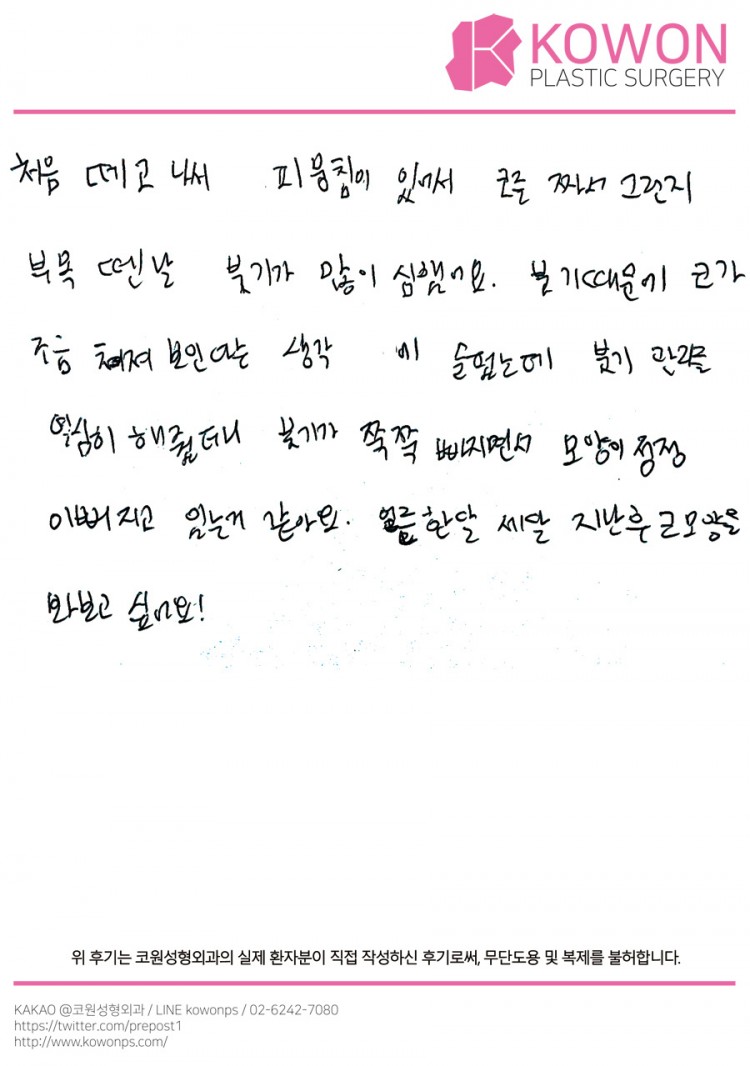 KOWON
PLASTIC SURGERY
처음 떼고 나서 피뭉침이 있어서 코를 짜서 그런지
부목 뗀날 붓기가 많이 심했어요. 붓기때문에 코가
조금 쳐져 보인다는 생각 이 들었는데 붓기 관리를
열심히 해줬더니 붓기가 쭉쭉 빠지면서 모양이 점점
이뻐지고 있는거 같아요. 얼른 한달 세달 지난후 코모양을
봐보고 싶어요!
위 후기는 코원성형외과의 실제 환자분이 직접 작성하신 후기로써, 무단도용 및 복제를 불허합니다.
KAKAO @코원성형외과 / LINE kowonps / 02-6242-7080
https://twitter.com/prepost1
http://www.kowonps.com/